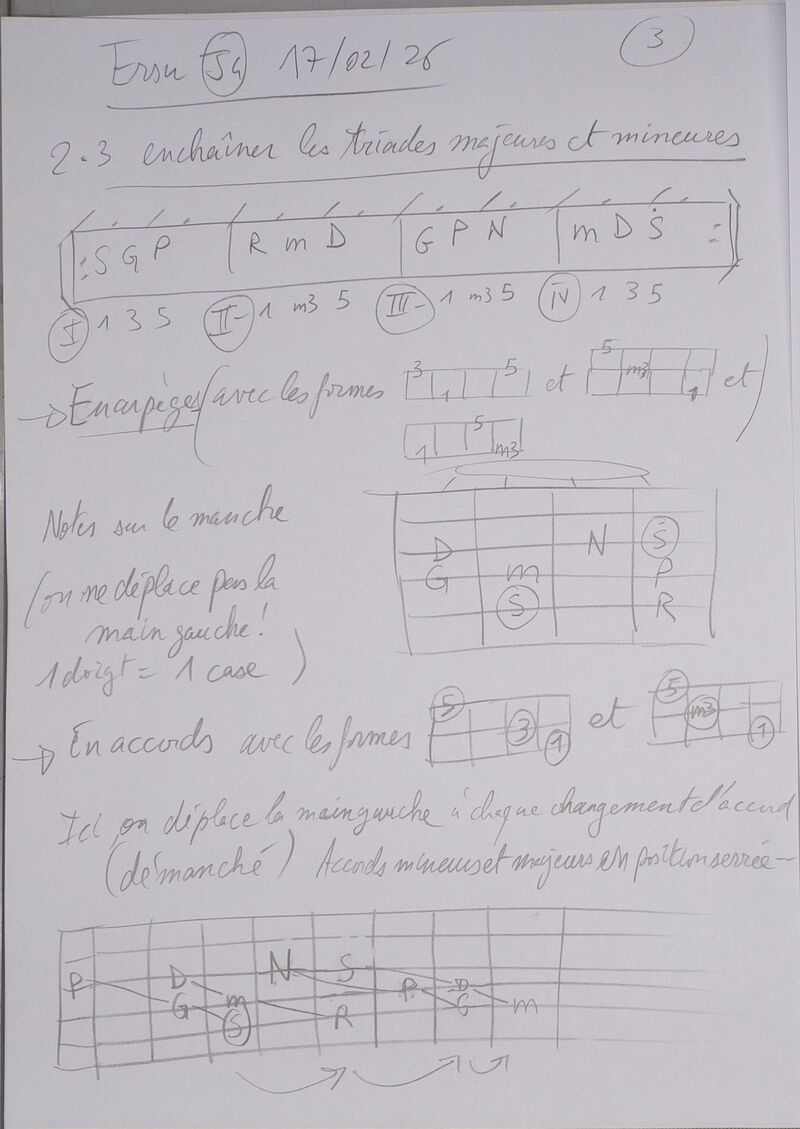 3
Ersu Sa 17/02/26
2.3 enchaîner les triades majeures et mineures
: S G P | R m D | G P N | m D Ṡ :
I 1 3 5 II- 1 m3 5 III- 1 m3 5 IV 1 3 5
→ En arpèges (avec les formes 3 1 5 et 5 m3 1 et
1 5 m3 )
Notes sur le manche
(on ne déplace pas la
main gauche !
1 doigt = 1 case )
D N Ṡ
G m P
S R
→ En accords avec les formes 5 3 1 et 5 m3 1
Ici, on déplace la main gauche à chaque changement d'accord
(démanché) Accords mineurs et majeurs en position serrée -
P D N S P D
G m G m
S R